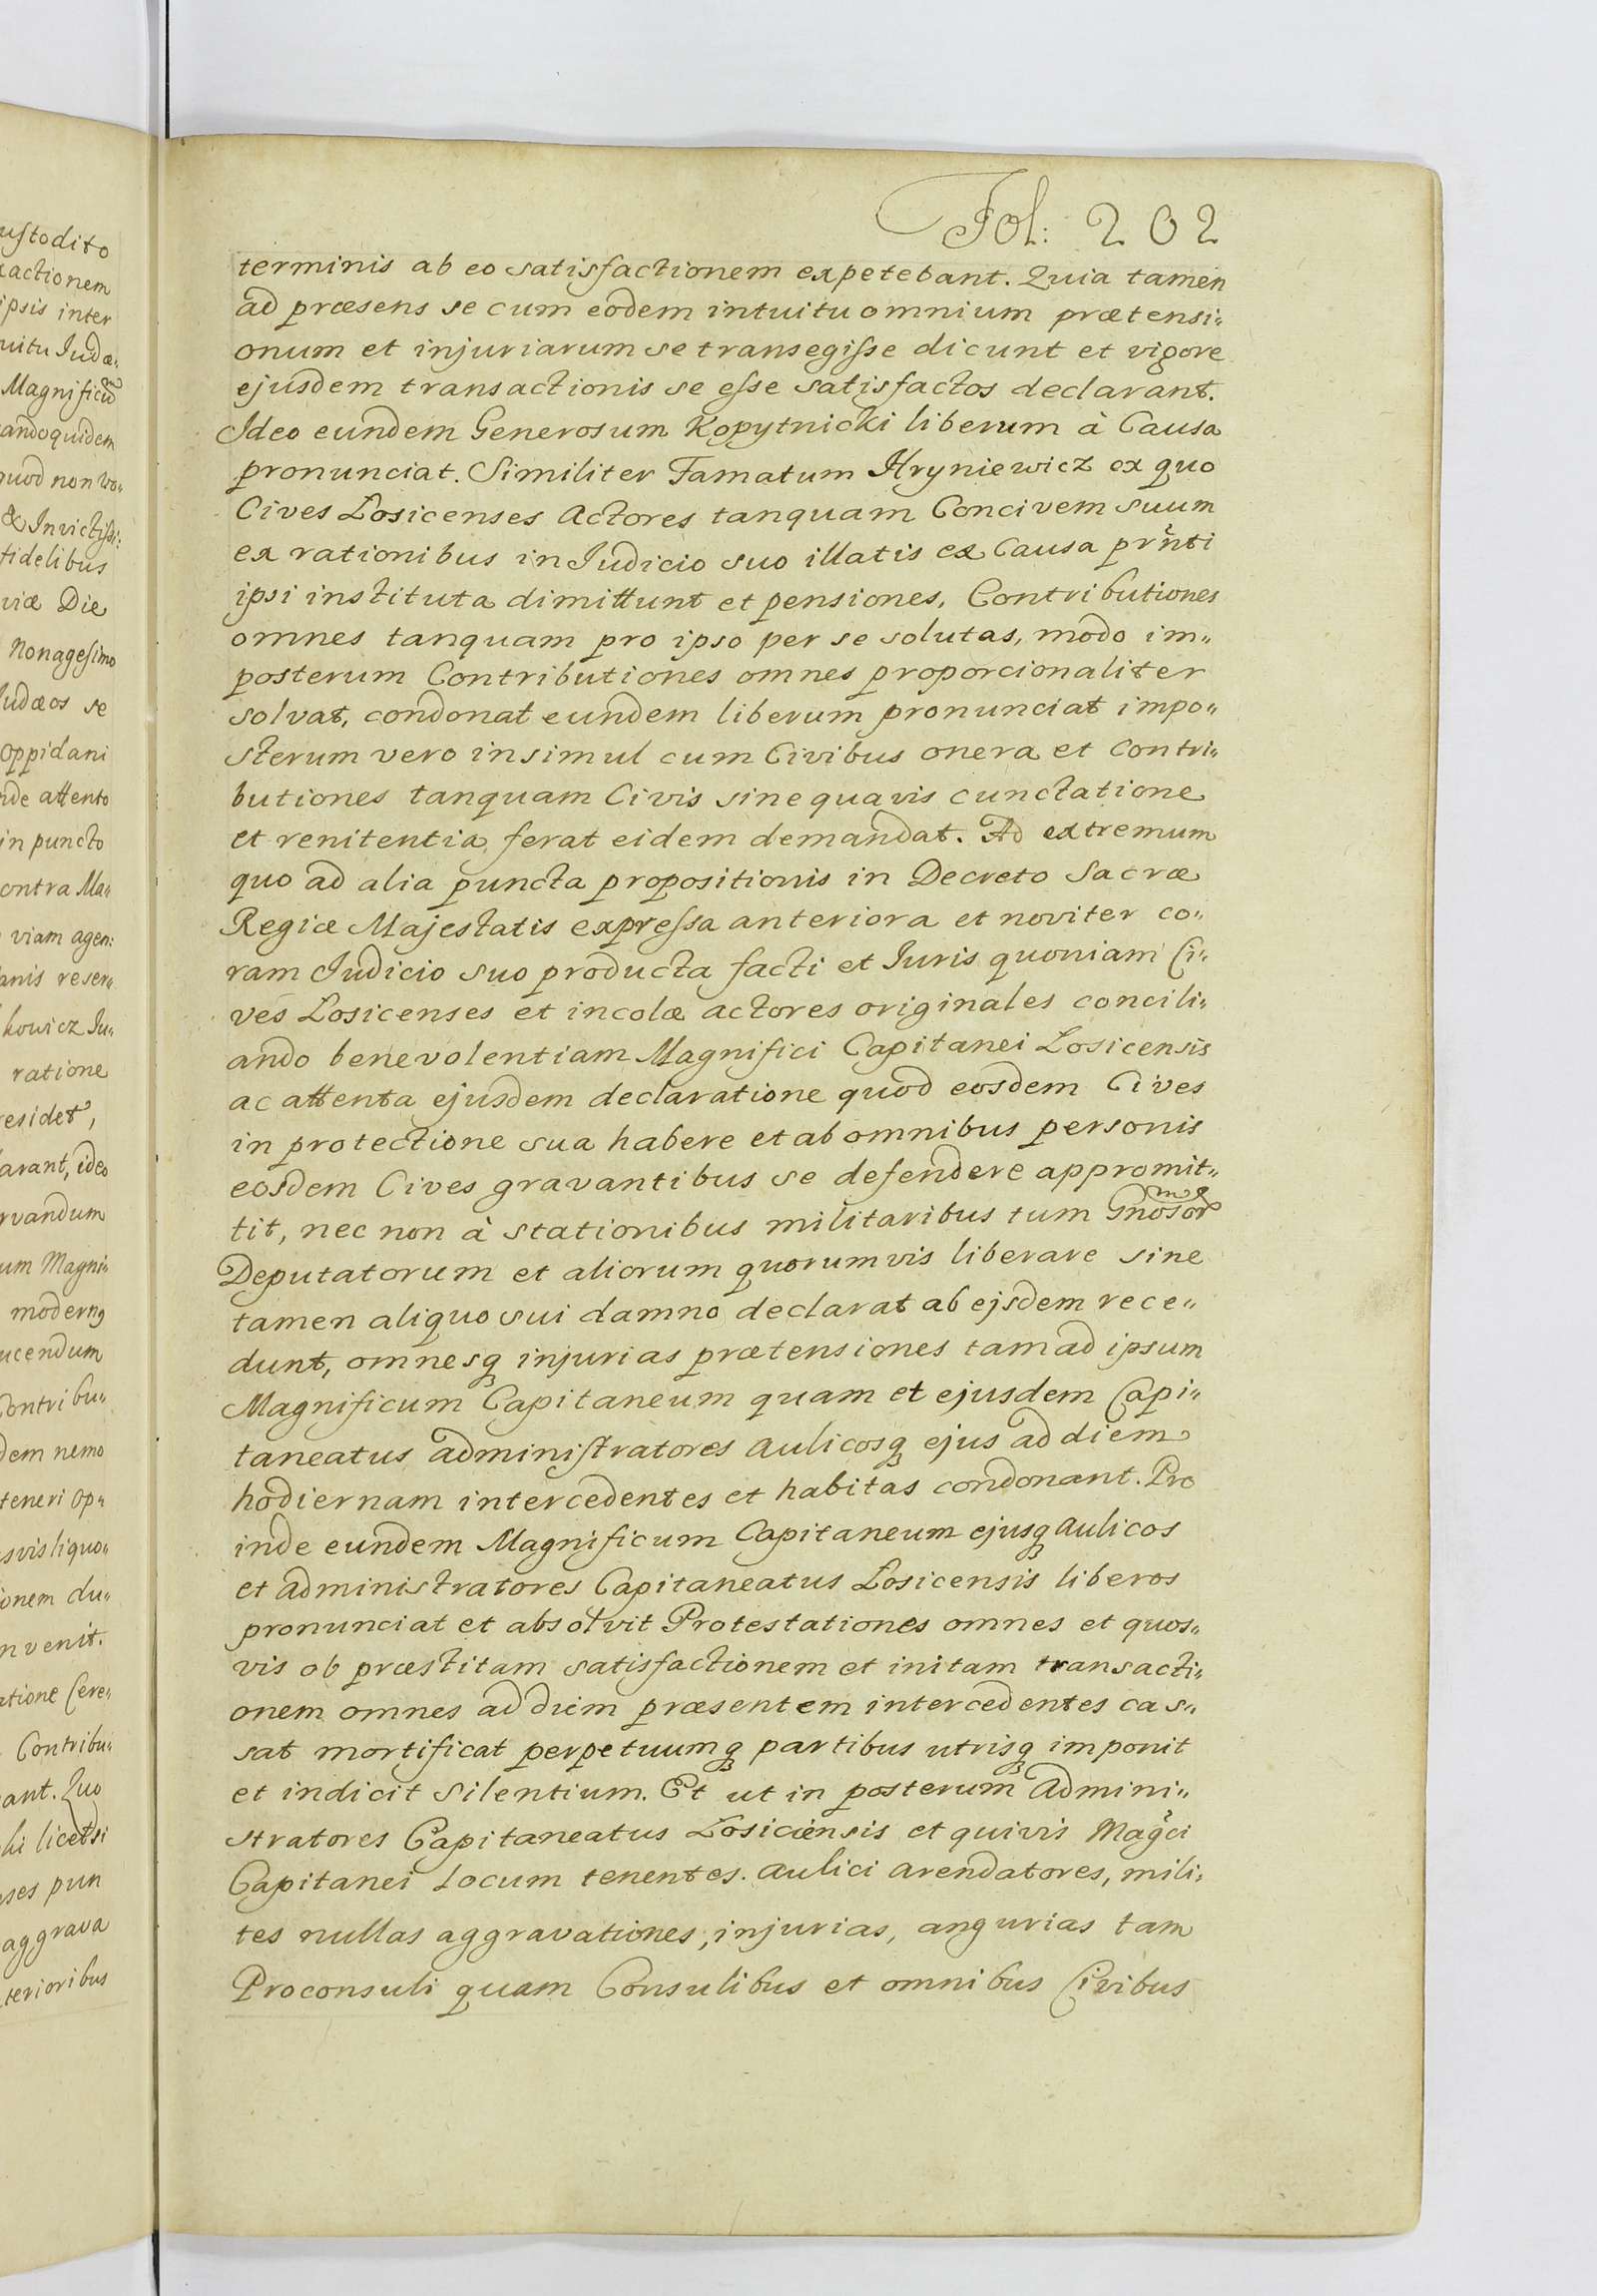 ustodito
actionem
ipsis inter
uitu Judæ„
Magnificũ
andoquidem
quod non vo„
& Invictissi:
fidelibus
viæ Die
Nonagesimo
Judæos se
Oppidani
nde attento
in puncto
contra Ma„
viam agen:
anis reser„
kowicz Ju„
ratione
residet,
larant, ideo
rvandum
um Magni„
modernq
ucendum
Contribu„
dem nemo
teneri op„
svis liquo„
ionem du„
nvenit.
atione Cere„
Contribu„
ant. Quo
hi licet si
nses pun
aggrava
terioribus
Fol: 202
terminis ab eo satisfactionem expetebant. Quia tamen
ad præsens se cum eodem intuitu omnium prætensi„
onum et injuriarum se transegisse dicunt et vigore
ejusdem transactionis se esse satisfactos declarant.
Ideo eundem Generosum Kopytnicki liberum à Causa
pronunciat. Similiter Famatum Hryniewicz ex quo
Cives Losicenses Actores tanquam Concivem suum
ex rationibus in Judicio suo illatis ex Causa prñti
ipsi instituta dimittunt et pensiones, Contributiones
omnes tanquam pro ipso per se solutas, modo im„
posterum Contributiones omnes proporcionaliter
solvat, condonat eundem liberum pronunciat impo„
sterum vero insimul cum Civibus onera et Contri„
butiones tanquam Civis sine quavis cunctatione
et renitentia ferat eidem demandat. Ad extremum
quo ad alia puncta propositionis in Decreto Sacræ
Regiæ Majestatis expressa anteriora et noviter co„
ram Judicio suo producta facti et Juris quoniam Ci„
ves Losicenses et incolæ actores originales concili„
ando benevolentiam Magnifici Capitanei Losicensis
ac attenta ejusdem declaratione quod eosdem Cives
in protectione sua habere et ab omnibus personis
eosdem Cives gravantibus se defendere appromit„
tit, nec non à stationibus militaribus tum Gnosor
Deputatorum et aliorum quorumvis liberare sine
tamen aliquo sui damno declarat ab ejsdem rece„
dunt, omnesq injurias prætensiones tam ad ipsum
Magnificum Capitaneum quam et ejusdem Capi„
taneatus administratores aulicosq ejus ad diem
hodiernam intercedentes et habitas condonant. Pro
inde eundem Magnificum Capitaneum ejusq aulicos
et administratores Capitaneatus Losicensis liberos
pronunciat et absolvit Protestationes omnes et quos„
vis ob præstitam satisfactionem et initam transacti„
onem omnes ad diem præsentem intercedentes cas„
sat mortificat perpetuumq partibus utrisq imponit
et indicit silentium. Et ut in posterum admini„
stratores Capitaneatus Losiciensis et quivis Magci
Capitanei Locum tenentes. aulici arendatores, mili„
tes nullas aggravationes, injurias, angurias tam
Proconsuli quam Consulibus et omnibus Civibus